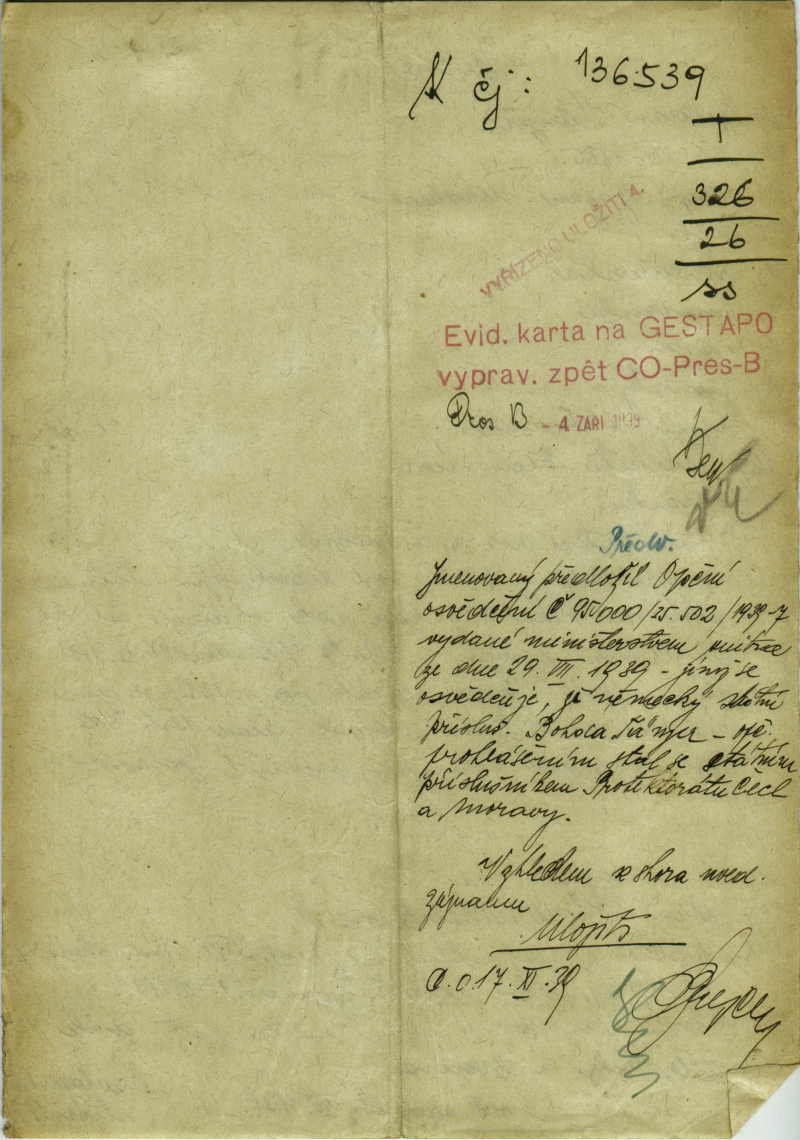 K čj: 136.539
326
26
ss
VYŘÍZENO ULOŽITI 4.
Evid. karta na GESTAPO
vyprav. zpět CO-Pres-B
B - 4 ZÁŘÍ 1939
Předv.
Jmenovaný předložil Opční
osvědční Č 95000/25.502/1939-7
vydané ministerstvem vnitra
ze dne 29. VII. 1939 - jímž se
osvědčuje, že německý státní
přísluš. - opč.
prohlášením stal se státním
příslušníkem Protektorátu Čech
a Moravy.
Vzhledem k shora uved.
záznamu
17. XI. 39